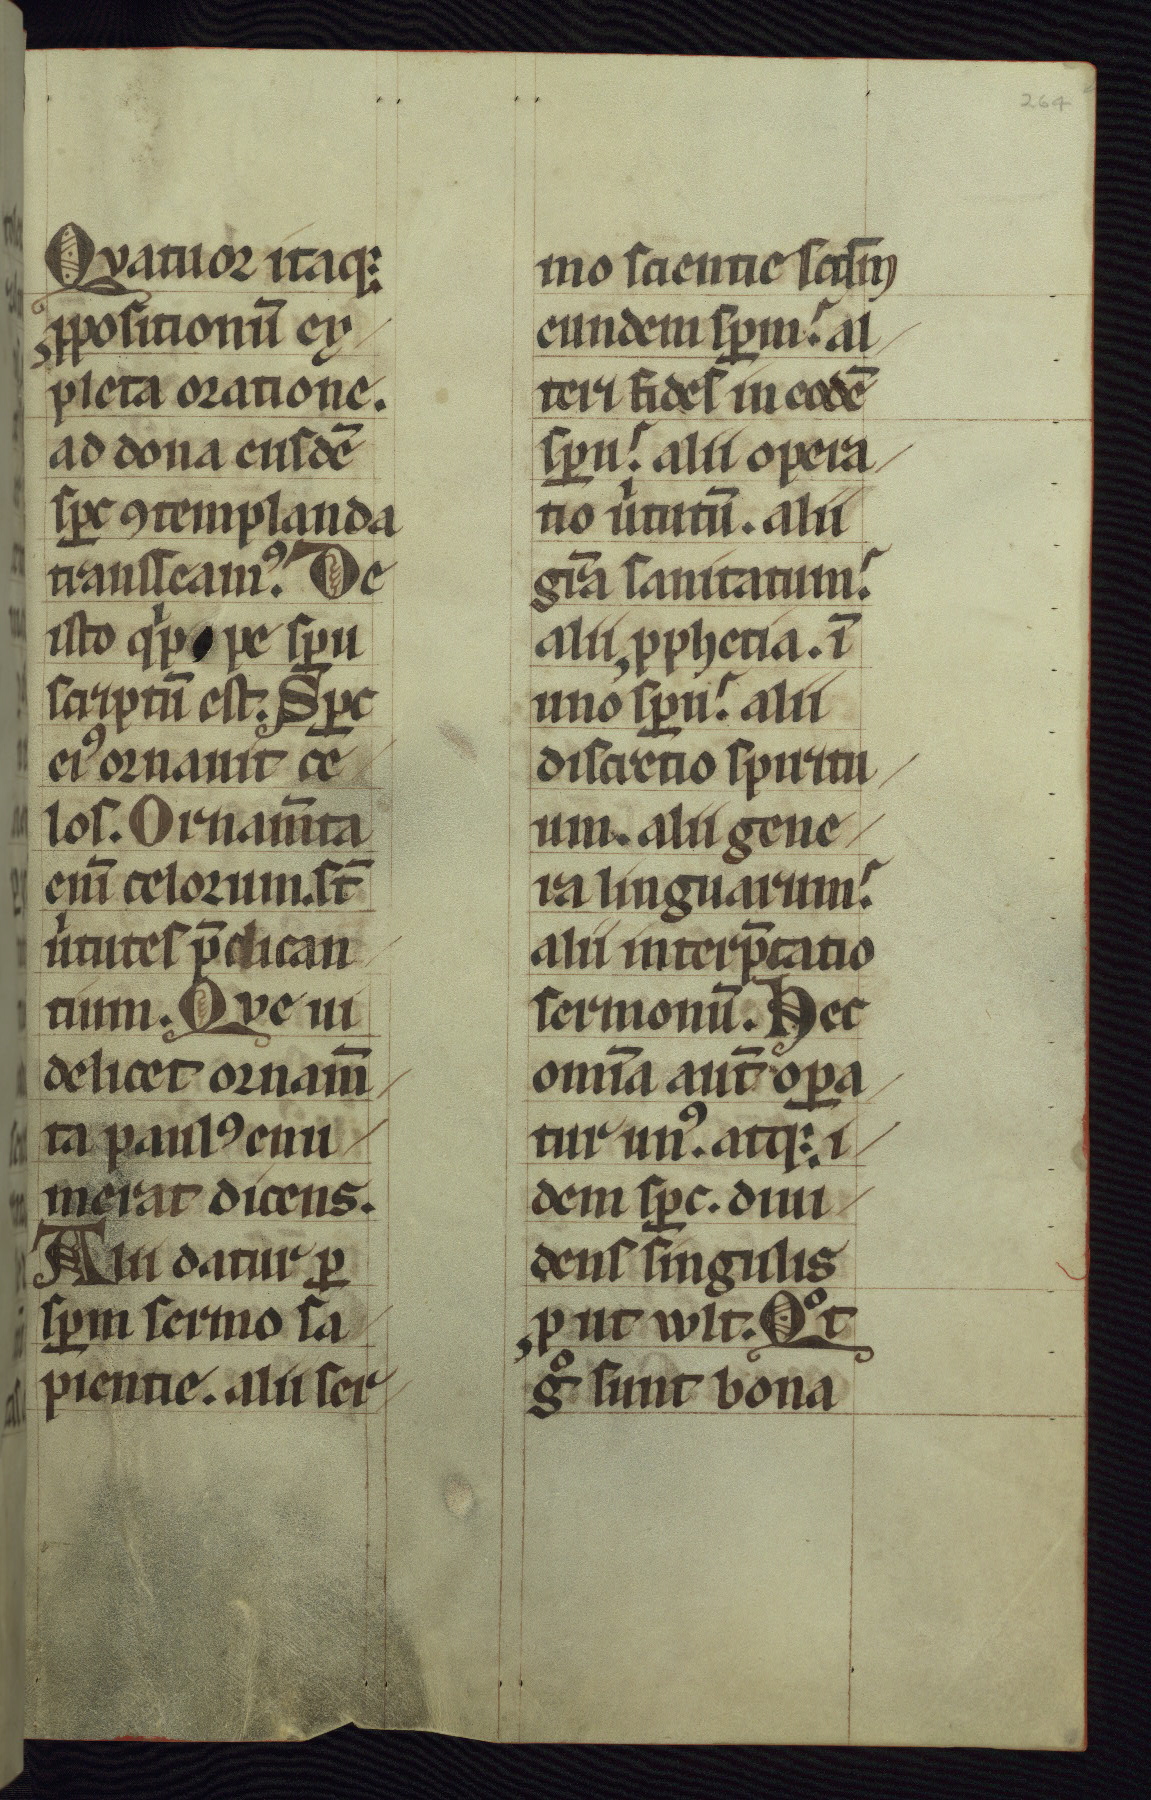 264
Quatuor itaq;
ꝓpositionū ex
pleta oratione.
ad dona eiusdē
sp̄c ꝯtemplanda
transseamꝰ. De
isto qͥppe sp̄u
scriptū est. Sp̄c
eiꝰ ornauit ce
los. Ornam̄ta
eni̅ celorum.st̄
uͥtutes p̄dican
tium. Que ui
delicet ornam̄
ta paulꝰ enu
merat dicens.
Alii datur ꝑ
sp̄m sermo sa
pientie. alii ser
mo scientie scd̄m
eundem sp̄m. al
teri fides in eodē
sp̄u. alii opera
tio uͥtutū. alii
gr̄a sanitatum.
alii ꝓphetia. ī
uno sp̄u. alii
discretio spiritu
um. alii gene
ra linguarum.
alii interp̄tatio
sermonū. Hec
omīa aut̄ oꝑa
tur unꝰ. atq; i
dem sp̄c. diui
dens singulis
ꝓut uult. Qͦt
gͦ sunt bona